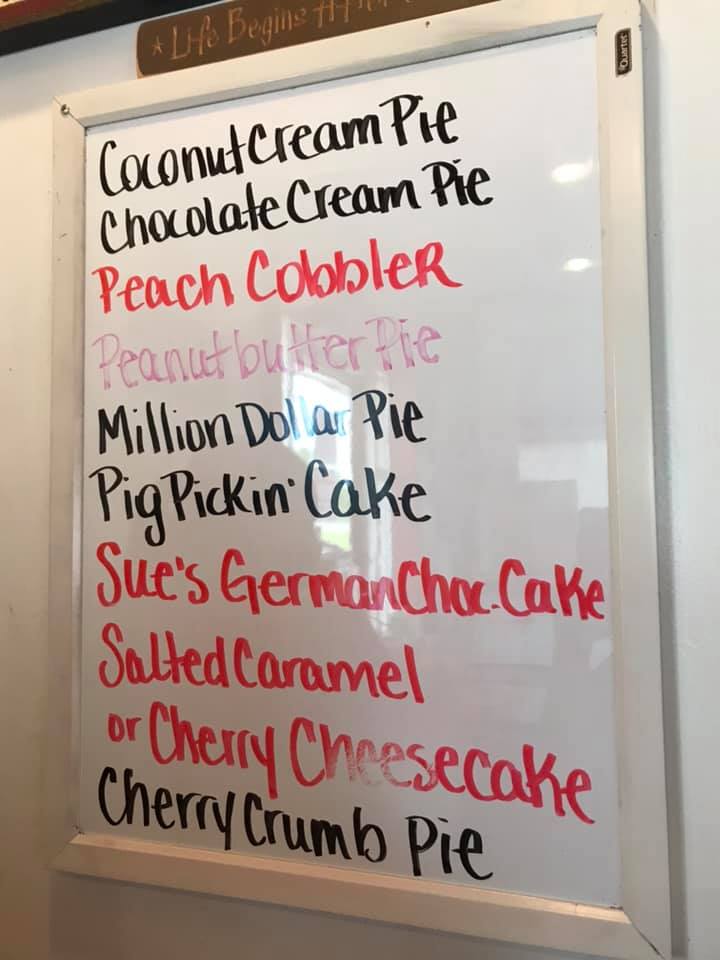 * Life Begins After
Quartet
Coconut Cream Pie
Chocolate Cream Pie
Peach Cobbler
Peanutbutter Pie
Million Dollar Pie
Pig Pickin' Cake
Sue's German Choc. Cake
Salted Caramel
or Cherry Cheesecake
Cherry Crumb Pie